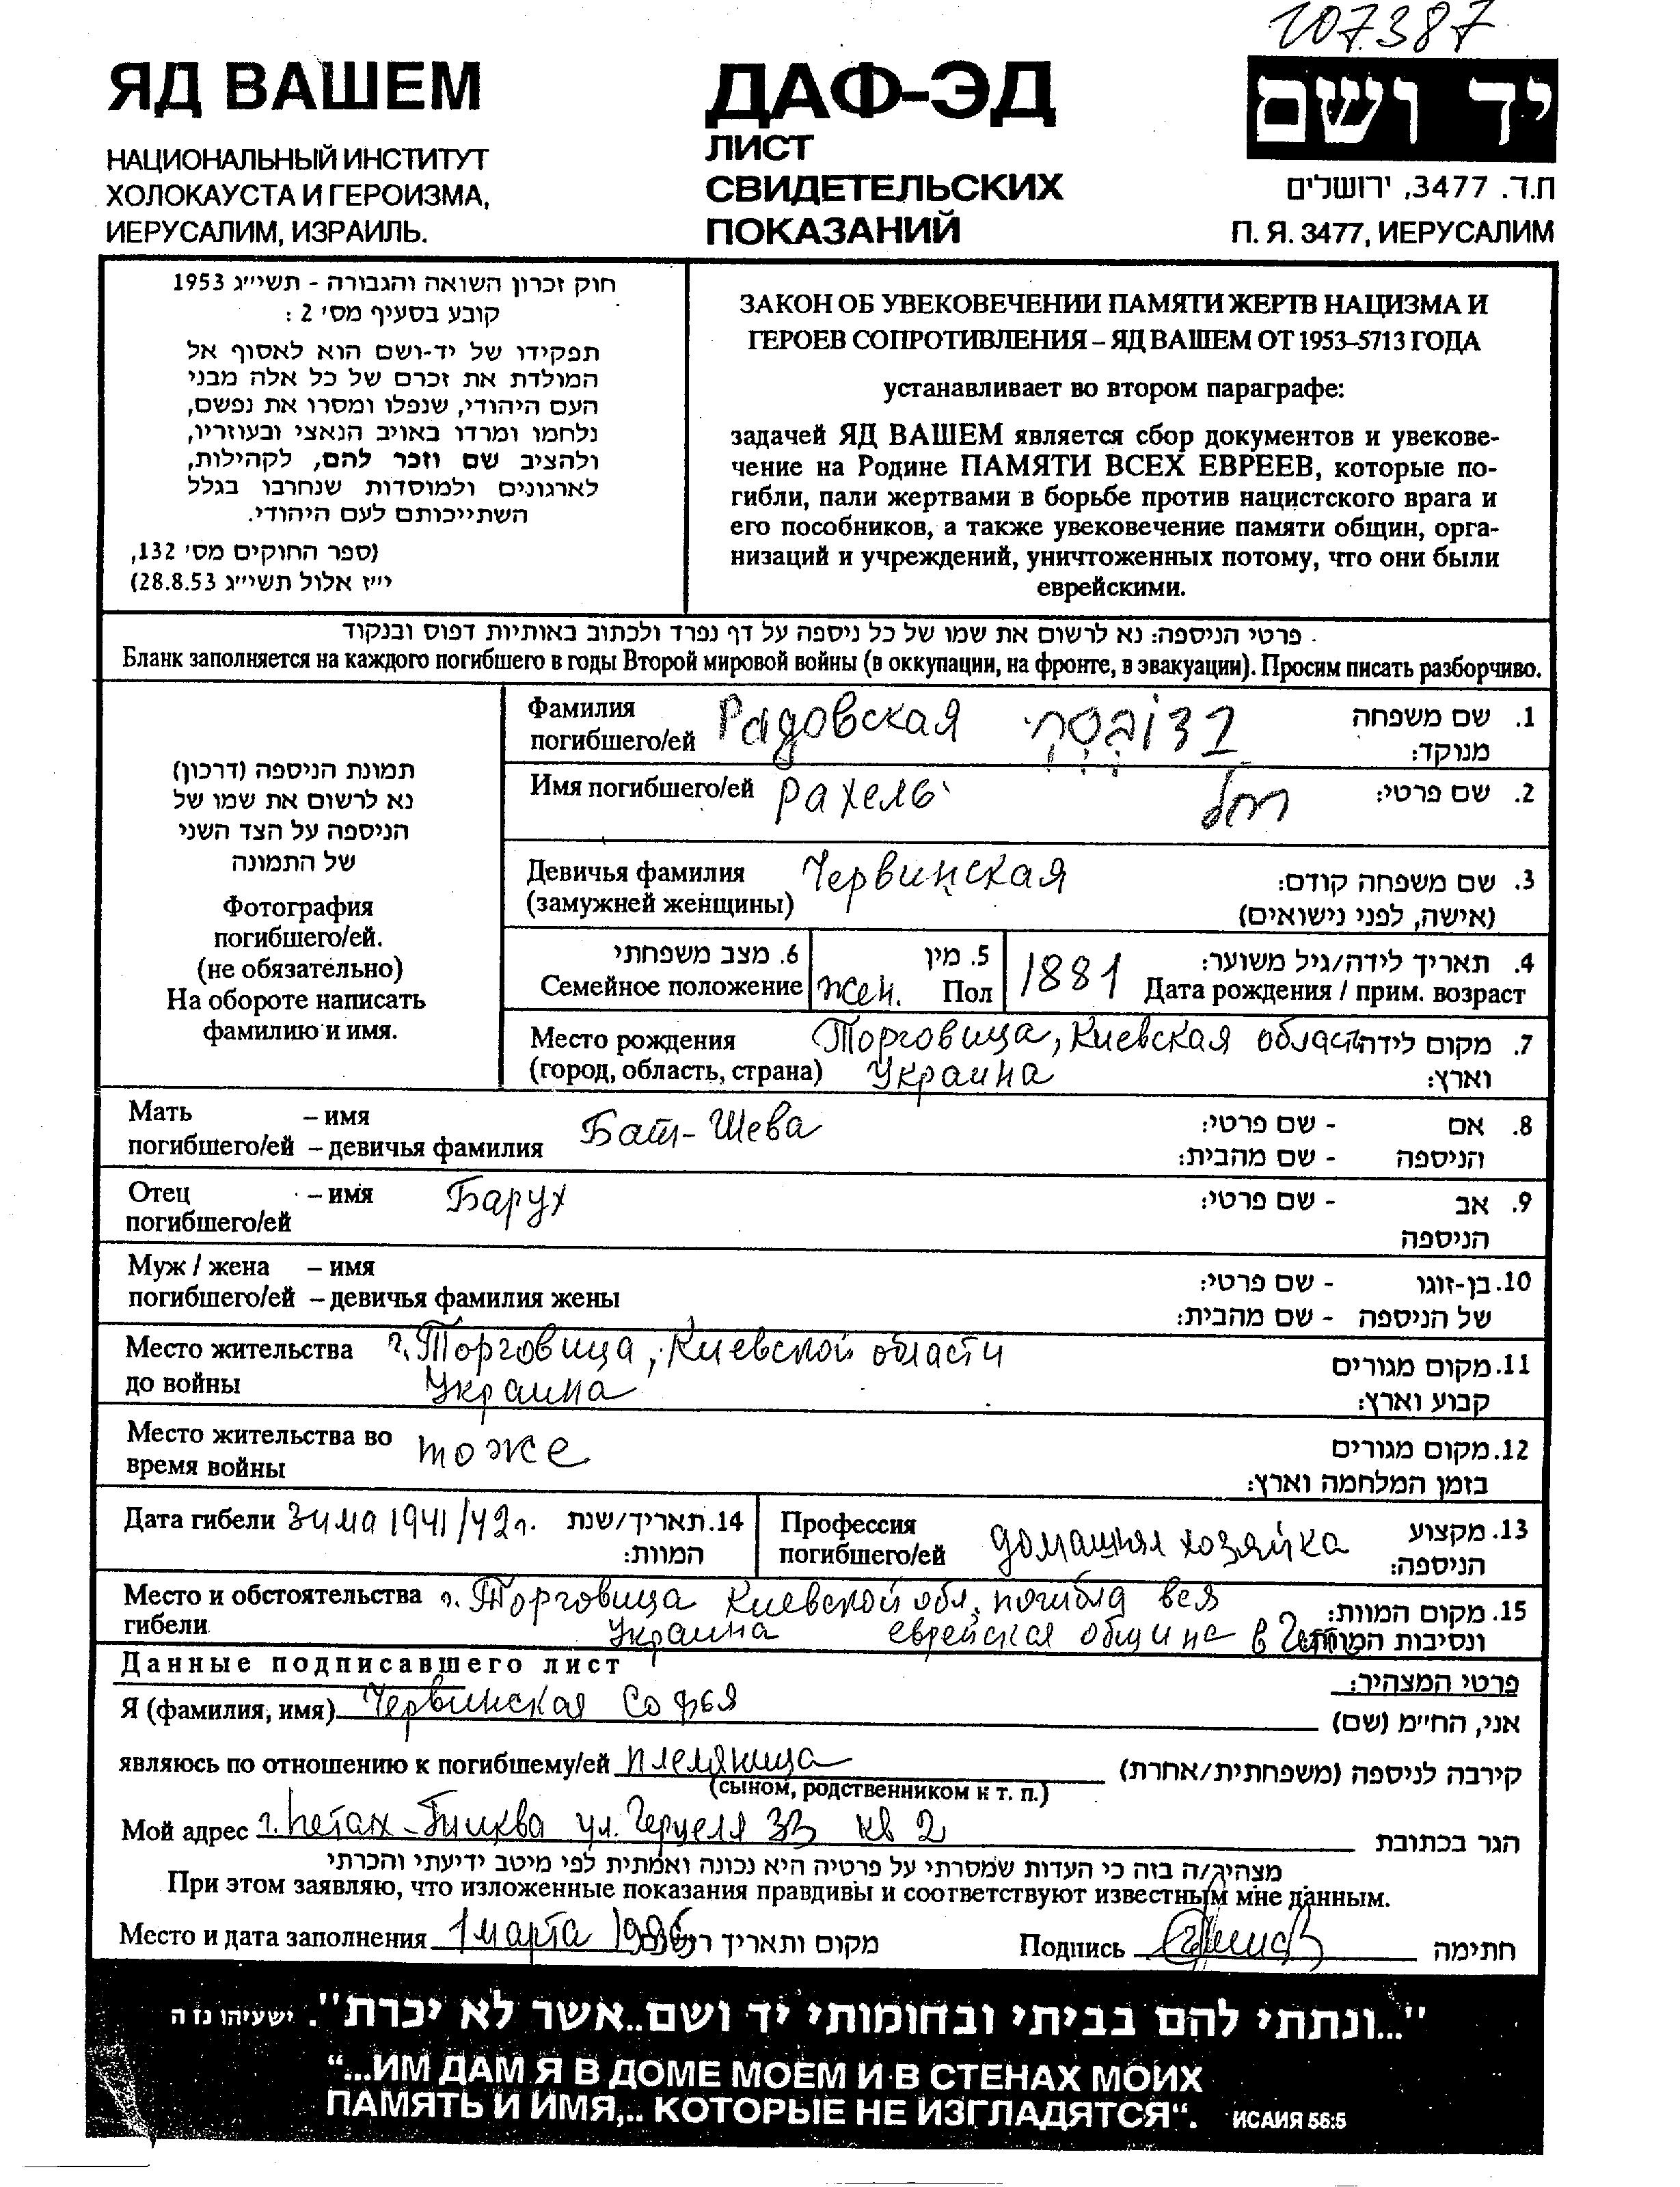 107387
ЯД ВАШЕМ
НАЦИОНАЛЬНЫЙ ИНСТИТУТ
ХОЛОКАУСТА И ГЕРОИЗМА,
ИЕРУСАЛИМ, ИЗРАИЛЬ.
ДАФ-ЭД
ЛИСТ
СВИДЕТЕЛЬСКИХ
ПОКАЗАНИЙ
יד ושם
ת.ד. 3477, ירושלים
П. Я. 3477, ИЕРУСАЛИМ
חוק זכרון השואה והגבורה - תשי״ג 1953
קובע בסעיף מס׳ 2 :
תפקידו של יד-ושם הוא לאסוף אל
המולדת את זכרם של כל אלה מבני
העם היהודי, שנפלו ומסרו את נפשם,
נלחמו ומרדו באויב הנאצי ובעוזריו,
ולהציב שם וזכר להם, לקהילות,
לארגונים ולמוסדות שנחרבו בגלל
השתייכותם לעם היהודי.
(ספר החוקים מס׳ 132,
י״ז אלול תשי״ג 28.8.53)
ЗАКОН ОБ УВЕКОВЕЧЕНИИ ПАМЯТИ ЖЕРТВ НАЦИЗМА И
ГЕРОЕВ СОПРОТИВЛЕНИЯ – ЯД ВАШЕМ ОТ 1953–5713 ГОДА
устанавливает во втором параграфе:
задачей ЯД ВАШЕМ является сбор документов и увекове-
чение на Родине ПАМЯТИ ВСЕХ ЕВРЕЕВ, которые по-
гибли, пали жертвами в борьбе против нацистского врага и
его пособников, а также увековечение памяти общин, орга-
низаций и учреждений, уничтоженных потому, что они были
еврейскими.
פרטי הניספה: נא לרשום את שמו של כל ניספה על דף נפרד ולכתוב באותיות דפוס ובנקוד
Бланк заполняется на каждого погибшего в годы Второй мировой войны (в оккупации, на фронте, в эвакуации). Просим писать разборчиво.
תמונת הניספה (דרכון)
נא לרשום את שמו של
הניספה על הצד השני
של התמונה
Фотография
погибшего/ей.
(не обязательно)
На обороте написать
фамилию и имя.
Фамилия Радовская 1. שם משפחה
погибшего/ей מנוקד:
Имя погибшего/ей Рахель רחל 2. שם פרטי:
Девичья фамилия Червинская 3. שם משפחה קודם:
(замужней женщины) (אישה, לפני נישואים)
6. מצב משפחתי 5. מין 4. תאריך לידה/גיל משוער:
Семейное положение жен. Пол 1881 Дата рождения / прим. возраст
Место рождения Торговица, Киевская област 7. מקום לידה
(город, область, страна) Украина וארץ:
Мать – имя Бат-Шева 8. אם - שם פרטי:
погибшего/ей – девичья фамилия הניספה - שם מהבית:
Отец – имя Барух 9. אב - שם פרטי:
погибшего/ей הניספה
Муж / жена – имя 10. בן-זוגו - שם פרטי:
погибшего/ей – девичья фамилия жены של הניספה - שם מהבית:
Место жительства г. Торговица, Киевской области 11. מקום מגורים
до войны Украина קבוע וארץ:
Место жительства во тоже 12. מקום מגורים
время войны בזמן המלחמה וארץ:
Дата гибели зима 1941/42г. 14. תאריך/שנת המוות:
Профессия домашняя хозяйка 13. מקצוע
погибшего/ей הניספה:
Место и обстоятельства г. Торговица Киевской обл, погибла вся 15. מקום המוות:
гибели Украина еврейская община в Гетто ונסיבות המוות:
Данные подписавшего лист פרטי המצהיר:
Я (фамилия, имя) Червинская Софья אני, הח״מ (שם)
являюсь по отношению к погибшему/ей племяница קירבה לניספה (משפחתית/אחרת)
(сыном, родственником и т. п.)
Мой адрес г. Петах-Тиква ул. Герцеля 33 кв 2 הגר בכתובת
מצהיר/ה בזה כי העדות שמסרתי על פרטיה היא נכונה ואמתית לפי מיטב ידיעתי והכרתי
При этом заявляю, что изложенные показания правдивы и соответствуют известным мне данным.
Место и дата заполнения 1 марта 1996 מקום ותאריך Подпись חתימה
"...ונתתי להם בביתי ובחומותי יד ושם..אשר לא יכרת". ישעיהו נו ה
“...ИМ ДАМ Я В ДОМЕ МОЕМ И В СТЕНАХ МОИХ
ПАМЯТЬ И ИМЯ,.. КОТОРЫЕ НЕ ИЗГЛАДЯТСЯ“. ИСАИЯ 56:5